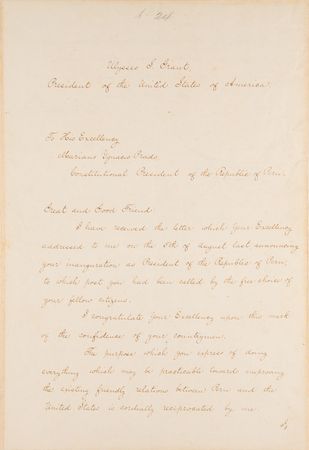 Ulysses S. Grant,
President of the United States of America
To His Excellency
Mariano Ignacio Prado,
Constitutional President of the Republic of Peru.
Great and Good Friend
I have received the letter which Your Excellency
addressed to me on the 5th of August last announcing
your inauguration as President of the Republic of Peru,
to which post you had been called by the free choice of
your fellow citizens.
I congratulate Your Excellency upon this mark
of the confidence of your countrymen.
The purpose which you express of doing
everything which may be practicable toward improving
the existing friendly relations between Peru and the
United States is cordially reciprocated by me.